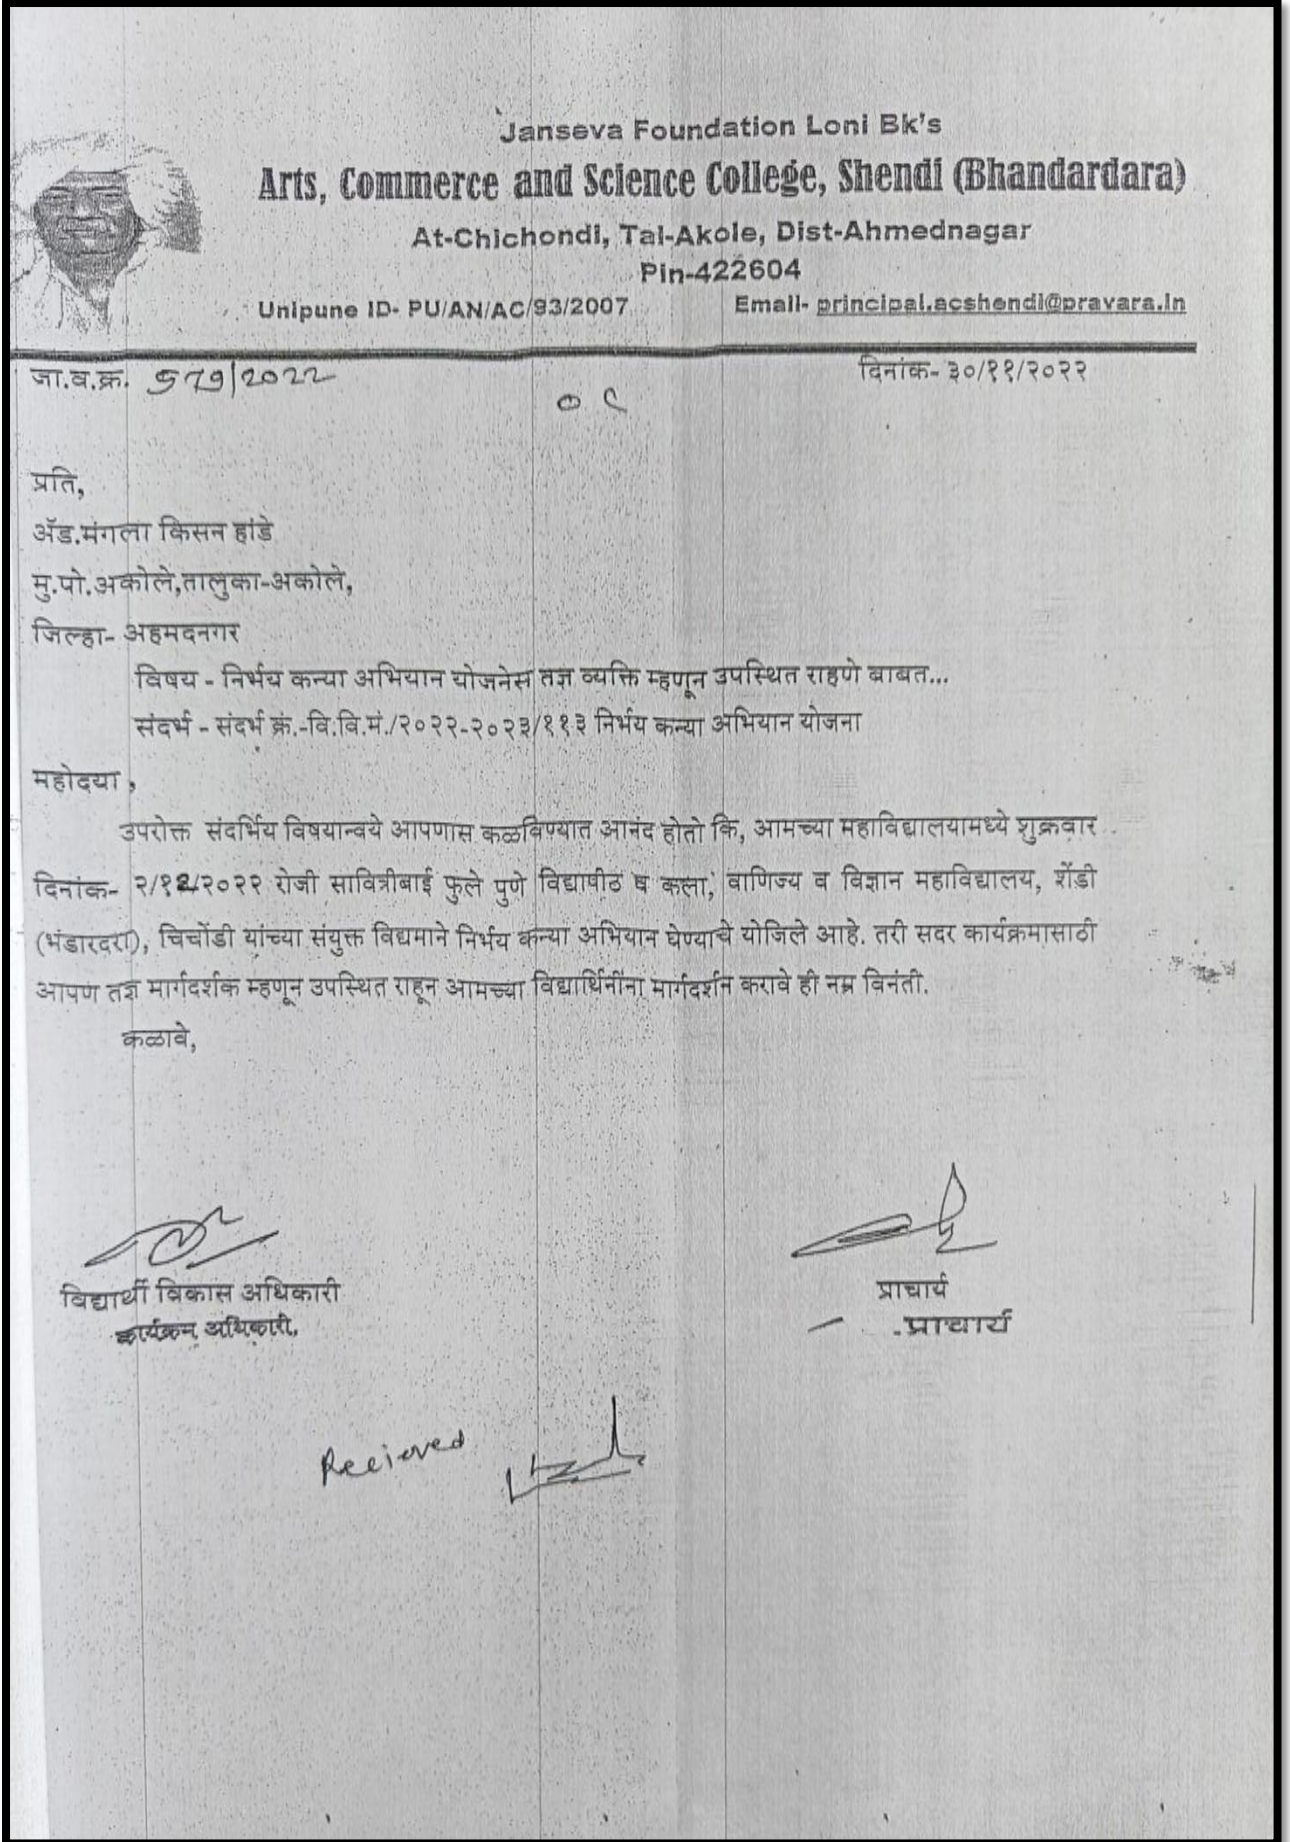 Janseva Foundation Loni Bk's
Arts, Commerce and Science College, Shendi (Bhandardara)
At-Chichondi, Tal-Akole, Dist-Ahmednagar
Pin-422604
Unipune ID- PU/AN/AC/93/2007 Email- principal.acshendi@pravara.in
जा.व.क्र. 579/2022 दिनांक- ३०/११/२०२२
प्रति,
ॲड.मंगला किसन हांडे
मु.पो.अकोले,तालुका-अकोले,
जिल्हा- अहमदनगर
विषय - निर्भय कन्या अभियान योजनेस तज्ञ व्यक्ति म्हणून उपस्थित राहणे बाबत...
संदर्भ - संदर्भ क्रं.-वि.वि.मं./२०२२-२०२३/११३ निर्भय कन्या अभियान योजना
महोदया ,
उपरोक्त संदर्भिय विषयान्वये आपणास कळविण्यात आनंद होतो कि, आमच्या महाविद्यालयामध्ये शुक्रवार
दिनांक- २/१२/२०२२ रोजी सावित्रीबाई फुले पुणे विद्यापीठ व कला, वाणिज्य व विज्ञान महाविद्यालय, शेंडी
(भंडारदरा), चिचोंडी यांच्या संयुक्त विद्यमाने निर्भय कन्या अभियान घेण्याचे योजिले आहे. तरी सदर कार्यक्रमासाठी
आपण तज्ञ मार्गदर्शक म्हणून उपस्थित राहून आमच्या विद्यार्थिनींना मार्गदर्शन करावे ही नम्र विनंती.
कळावे,
विद्यार्थी विकास अधिकारी प्राचार्य
कार्यक्रम अधिकारी. प्राचार्य
Recieved